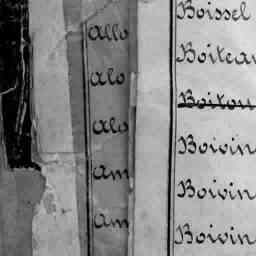 Allo
Alo
Alo
Am
Am
Boissel
Boiteau
Boitou
Boivin
Boivin
Boivin